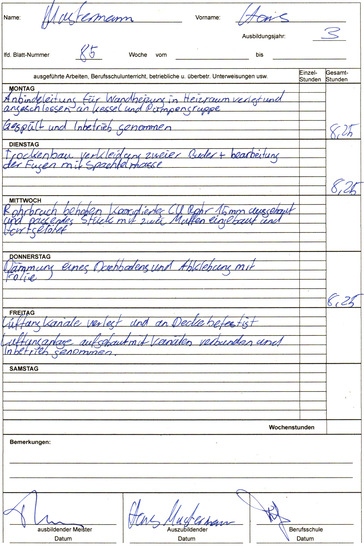 Name: Mustermann Vorname: Hans
Ausbildungsjahr: 3
lfd. Blatt-Nummer 85 Woche vom bis
ausgeführte Arbeiten, Berufsschulunterricht, betriebliche u. überbetr. Unterweisungen usw. Einzel-Stunden Gesamt-Stunden
MONTAG
Anbindeleitung für Wandheizung in Heizraum verlegt und
angeschlossen an Kessel und Pumpengruppe
Gespült und Inbetrieb genommen 8,25
DIENSTAG
Trockenbau verkleidung zweier Bäder + bearbeitung
der Fugen mit Spachtelmasse
8,25
MITTWOCH
Rohrbruch behoben Korrodiertes CU Rohr 15mm ausgebaut
und passendes Stück mit zwei Muffen eingebaut und
hartgelötet
DONNERSTAG
Dämmung eines Dachbodens und Abklebung mit
Folie
8,25
FREITAG
Lüftungskanäle verlegt und an Decke befestigt
Lüftungsanlage aufgebaut mit Kanälen verbunden und
Inbetrieb genommen.
SAMSTAG
Wochenstunden
Bemerkungen:
Hans Mustermann
ausbildender Meister Auszubildender Berufsschule
Datum Datum Datum